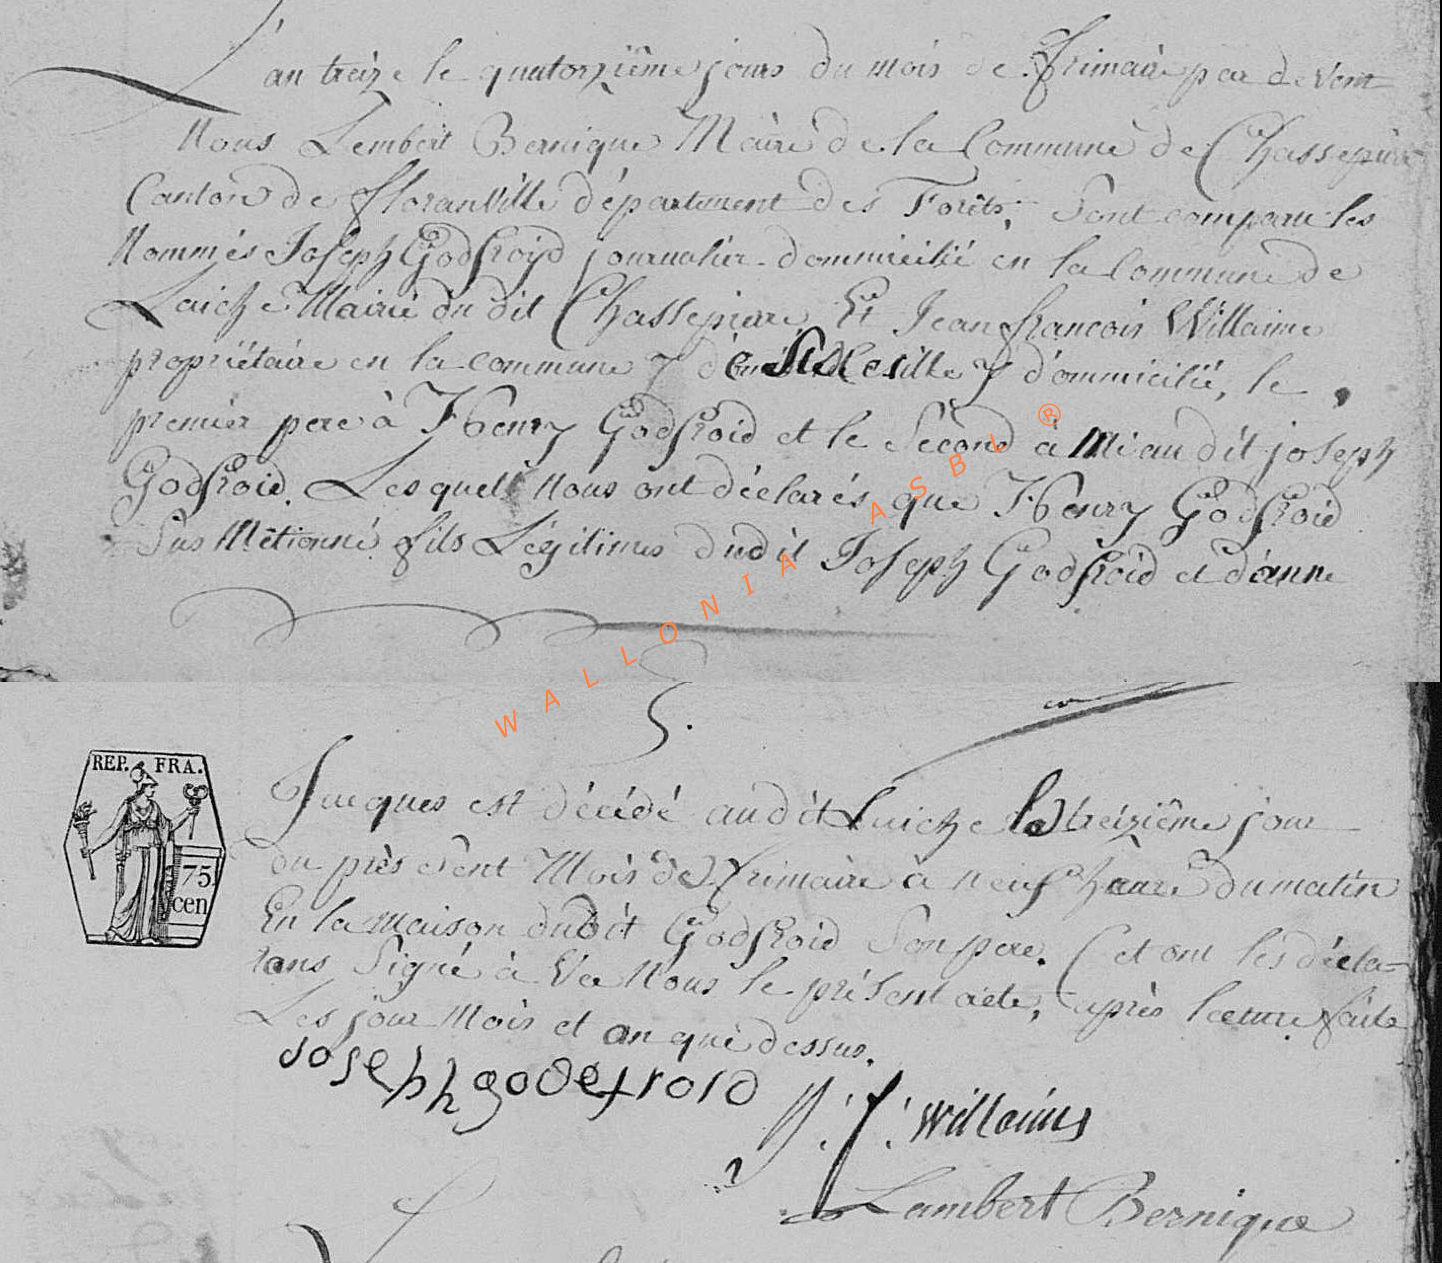 L'an treize le quatorzième jours du mois de frimaire par devent
Nous Lembert Bernique Maire de la Commune de Chassepierre
Canton de floranville département des Forêts, Sont comparu les
Nommés Joseph Godfroijd journalier dommicilié en la Commune de
Laiche Mairie du dit Chassepierre Et Jean francois Willaime
propriétaire en la commune y dommicilié, le
premier pere à Henry Godfroid et le Second à Mi audit joseph
Godfroid. Lesquels Nous ont déclarés que Henry Godfroid
Sus Métionné fils Légitimes dudit Joseph Godfroid et d'anne
WALLONIA ASBL ®
5.
REP. FRA.
75
cen
Jacques est décédé audit Laiche le treizième jour
du près esent Mois de frimaire à neuf heure du matin
En la maison dudit Godfroid Son pere. Et ont lés décla-
rans Signé à Vec Nous le présent acte, après lecture faite
Les jour Mois et an que dessus.
Joseph godefroid J: f: willaims
Lambert Bernique